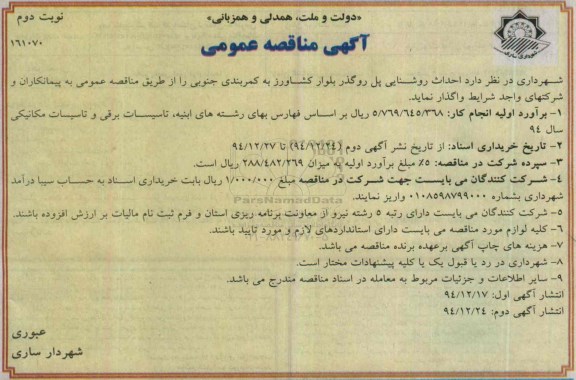 «دولت و ملت، همدلی و همزبانی»
نوبت دوم
۱۶۱۰۷۰
آگهی مناقصه عمومی
شهرداری ساری
شهرداری در نظر دارد احداث روشنایی پل روگذر بلوار کشاورز به کمربندی جنوبی را از طریق مناقصه عمومی به پیمانکاران و
شرکتهای واجد شرایط واگذار نماید.
۱- برآورد اولیه انجام کار: ۵/۷۶۹/۶۴۵/۳۶۸ ریال بر اساس فهارس بهای رشته های ابنیه، تاسیسات برقی و تاسیسات مکانیکی
سال ۹۴
۲- تاریخ خریداری اسناد: از تاریخ نشر آگهی دوم (۹۴/۱۲/۲۴) تا ۹۴/۱۲/۲۷
۳- سپرده شرکت در مناقصه: ۵٪ مبلغ برآورد اولیه به میزان ۲۸۸/۴۸۲/۲۶۹ ریال است.
۴- شرکت کنندگان می بایست جهت شرکت در مناقصه مبلغ ۱/۰۰۰/۰۰۰ ریال بابت خریداری اسناد به حساب سیبا درآمد
شهرداری بشماره ۰۱۰۸۵۹۸۷۹۹۰۰۰ واریز نمایند.
ParsNamadData
۵- شرکت کنندگان می بایست دارای رتبه ۵ رشته نیرو از معاونت برنامه ریزی استان و فرم ثبت نام مالیات بر ارزش افزوده باشند.
۶- کلیه لوازم مورد مناقصه می بایست دارای استانداردهای لازم و مورد تایید باشند.
۷- هزینه های چاپ آگهی برعهده برنده مناقصه می باشد.
۸- شهرداری در رد یا قبول یک یا کلیه پیشنهادات مختار است.
۹- سایر اطلاعات و جزئیات مربوط به معامله در اسناد مناقصه مندرج می باشد.
انتشار آگهی اول: ۹۴/۱۲/۱۷
انتشار آگهی دوم: ۹۴/۱۲/۲۴
عبوری
شهردار ساری